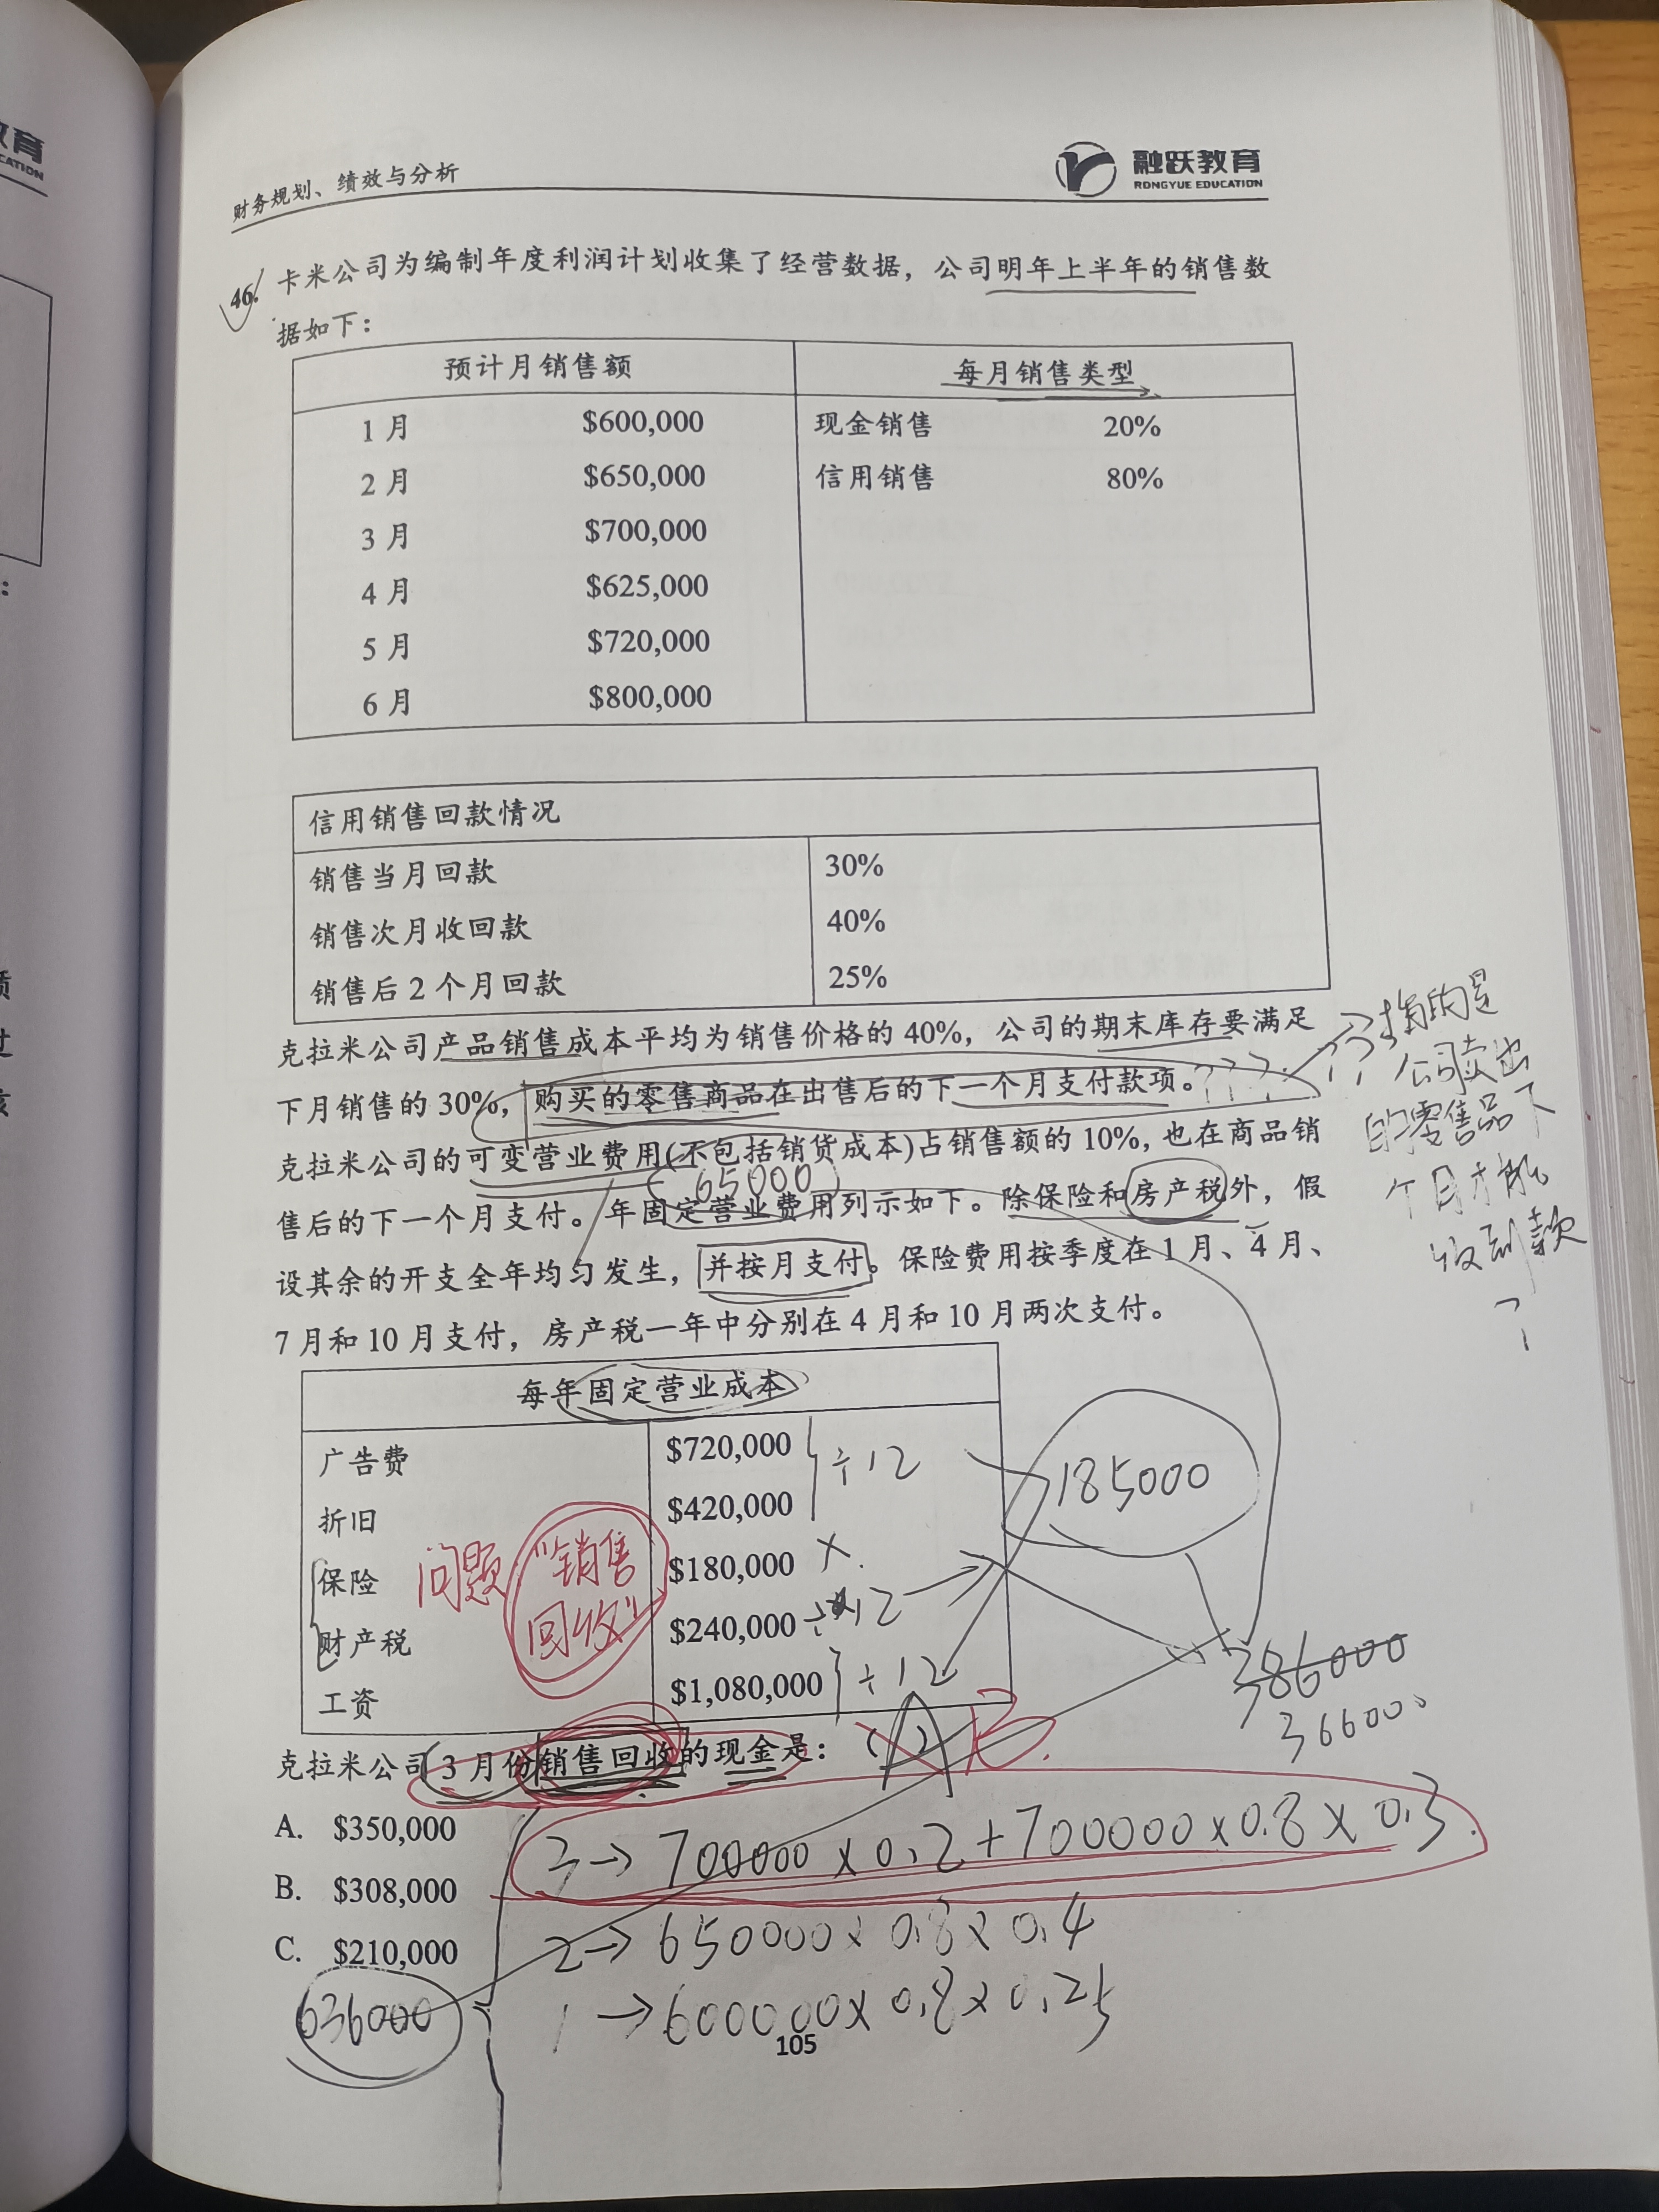 教育
CATION
财务规划、绩效与分析
融跃教育
RONGYUE EDUCATION
46. 卡米公司为编制年度利润计划收集了经营数据，公司明年上半年的销售数
据如下：
预计月销售额 每月销售类型
1 月 $600,000 现金销售 20%
2 月 $650,000 信用销售 80%
3 月 $700,000
4 月 $625,000
5 月 $720,000
6 月 $800,000
信用销售回款情况
销售当月回款 30%
销售次月收回款 40%
销售后 2 个月回款 25%
克拉米公司产品销售成本平均为销售价格的 40%，公司的期末库存要满足
下月销售的 30%，购买的零售商品在出售后的下一个月支付款项。???
?? 指的是
公司卖出
的零售品下
个月才能
收到款
?
克拉米公司的可变营业费用(不包括销货成本)占销售额的 10%，也在商品销
(65000)
售后的下一个月支付。年固定营业费用列示如下。除保险和房产税外，假
设其余的开支全年均匀发生，并按月支付。保险费用按季度在 1 月、4 月、
7 月和 10 月支付，房产税一年中分别在 4 月和 10 月两次支付。
每年固定营业成本
广告费 $720,000 ÷12
折旧 $420,000
保险 $180,000 ×
财产税 $240,000 ÷12
工资 $1,080,000 ÷12
185000
问题 "销售
回收"
386000
366000
克拉米公司 3 月份销售回收的现金是：( A ) B.
A. $350,000
B. $308,000
C. $210,000
3→ 700000×0.2+700000×0.8×0.3.
2→ 650000×0.8×0.4
1→600000×0.8×0.25
636000
105